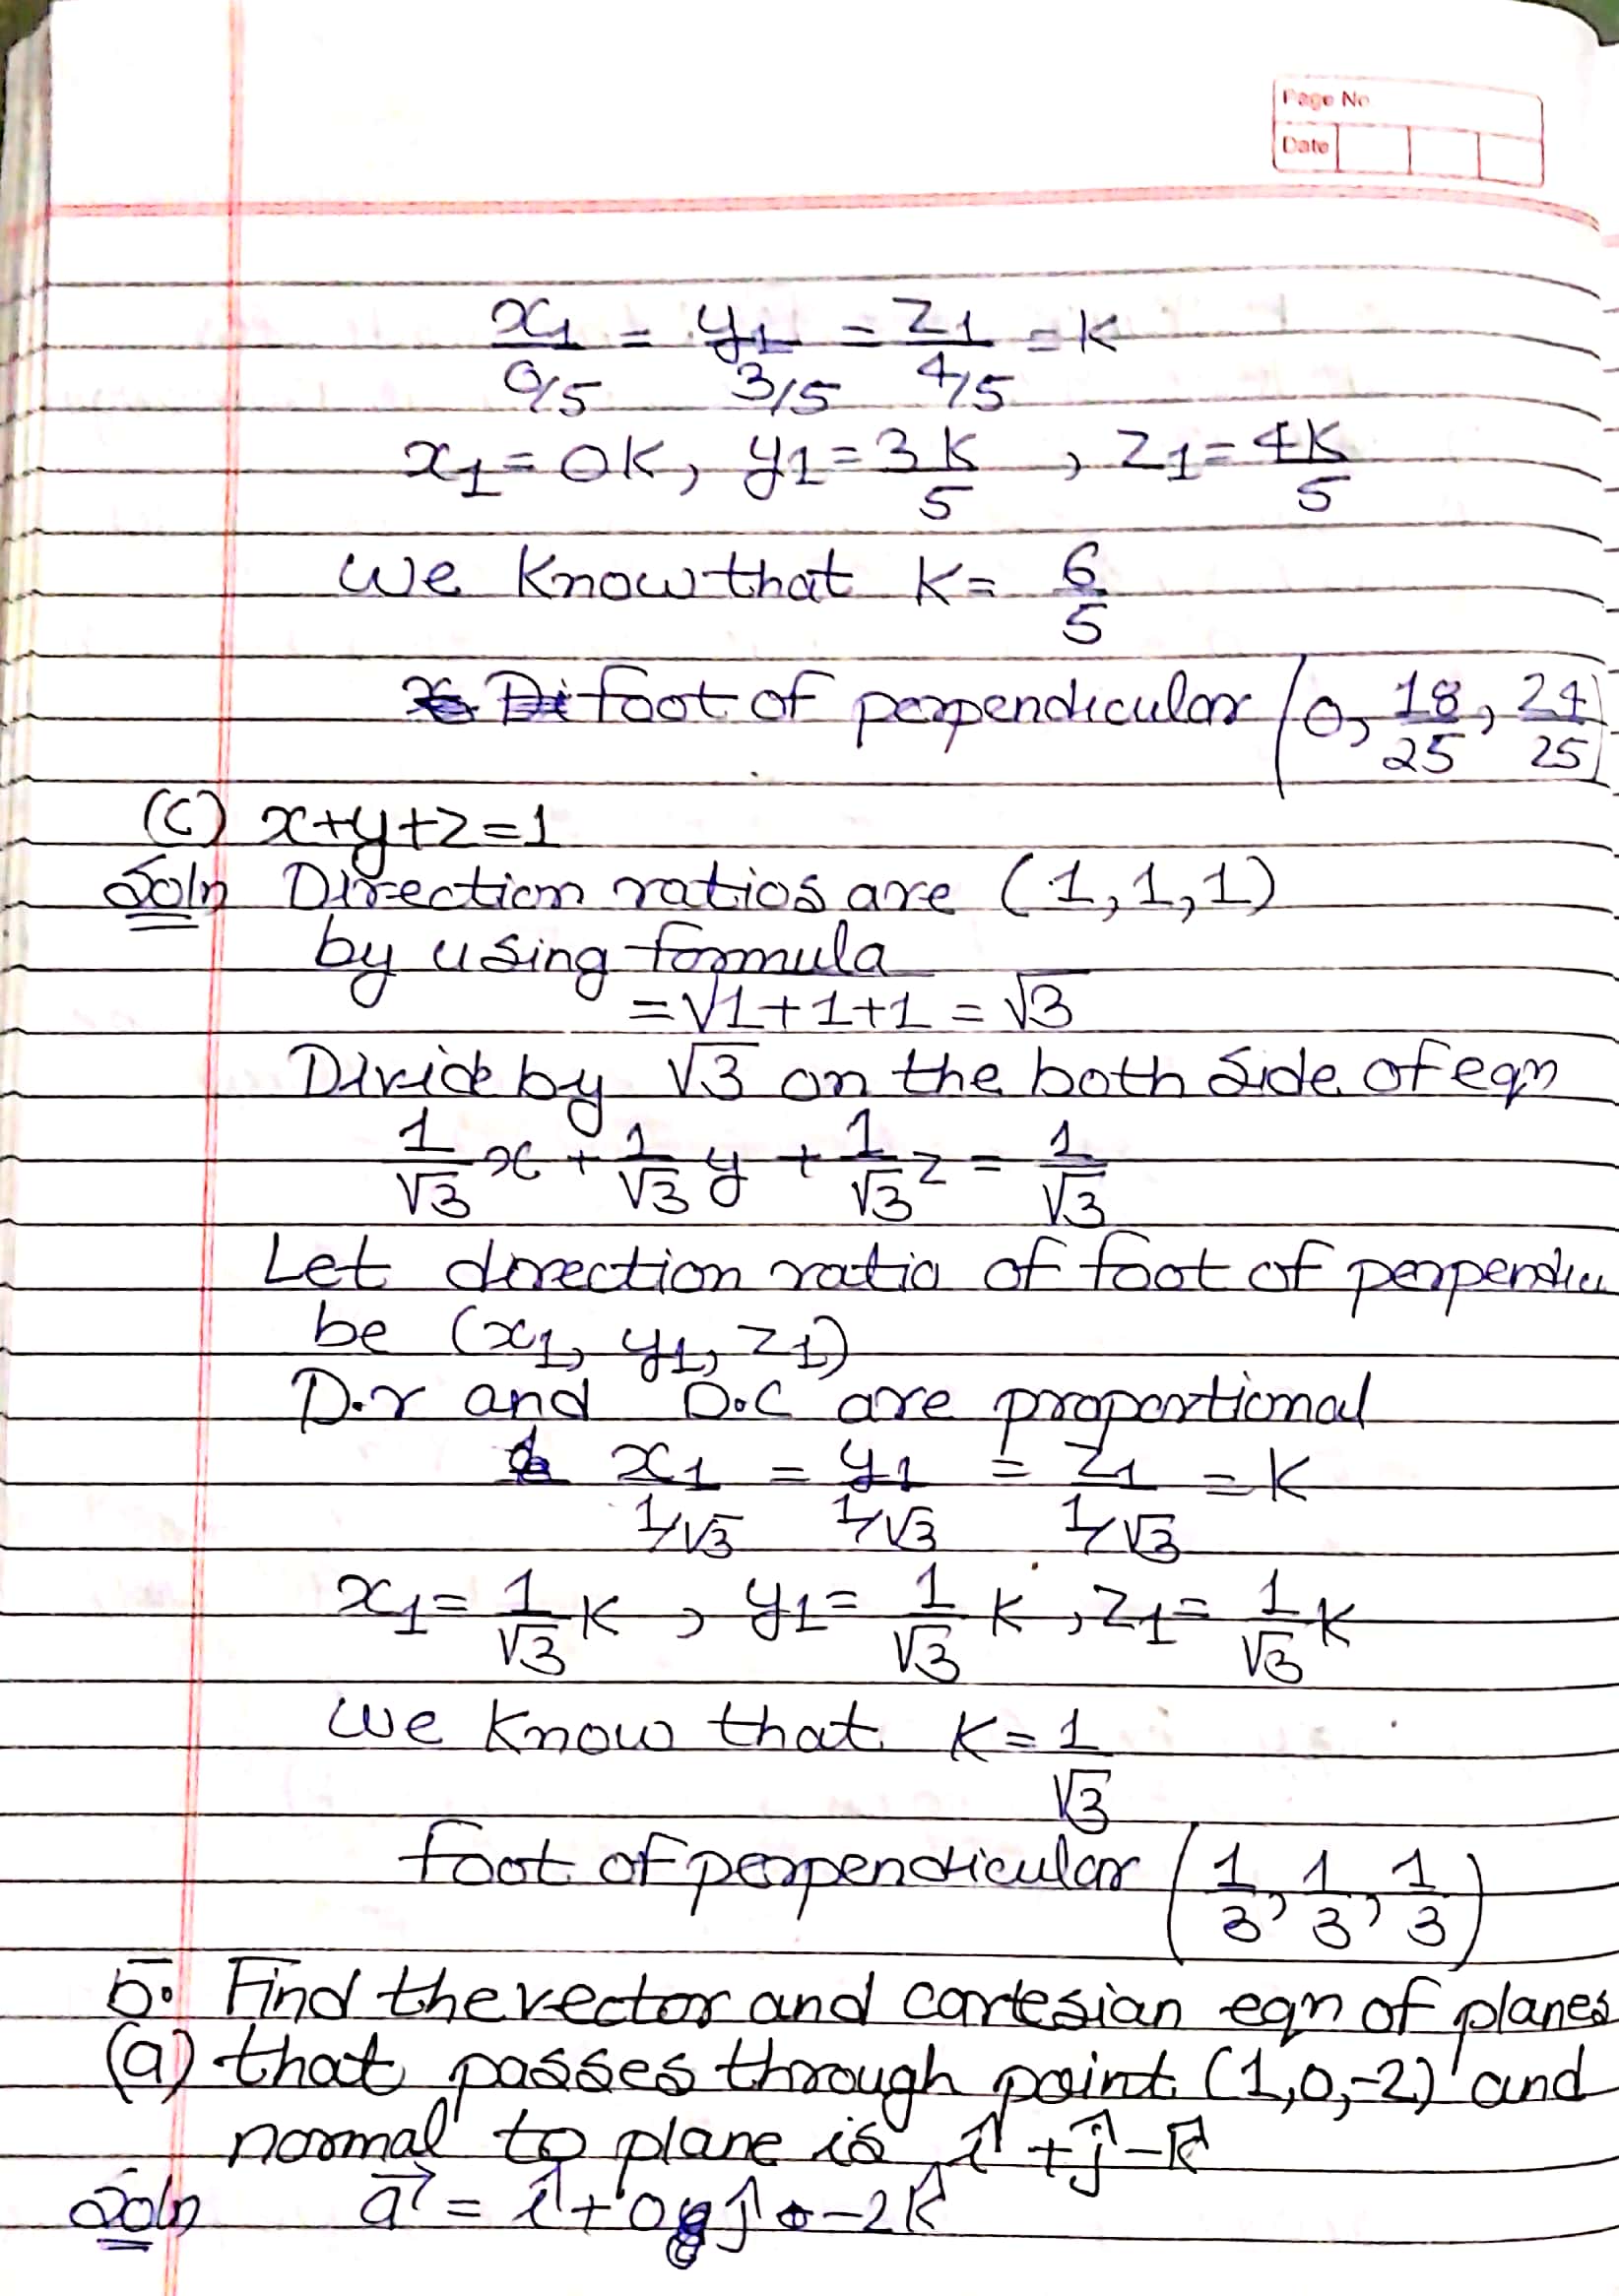 Page No
Date
x₁/0/5 = y₁/3/5 = z₁/4/5 = K
x₁ = 0K, y₁ = 3K/5, z₁ = 4K/5
We Know that K = 6/5
foot of perpendicular (0, 18/25, 24/25)
(C) x+y+z=1
Soln Direction ratios are (1,1,1)
by using formula
= √1+1+1 = √3
Divide by √3 on the both side of eqn
1/√3 x + 1/√3 y + 1/√3 z = 1/√3
Let direction ratio of foot of perpendicu
be (x₁, y₁, z₁)
D.r and D.C are proportional
x₁/1/√3 = y₁/1/√3 = z₁/1/√3 = K
x₁ = 1/√3 K, y₁ = 1/√3 K, z₁ = 1/√3 K
We Know that K = 1/√3
foot of perpendicular (1/3, 1/3, 1/3)
5. Find the vector and cartesian eqn of planes
(a) that passes through point (1,0,-2) and
normal to plane is î + ĵ - k̂
Soln a⃗ = î + 0ĵ - 2k̂